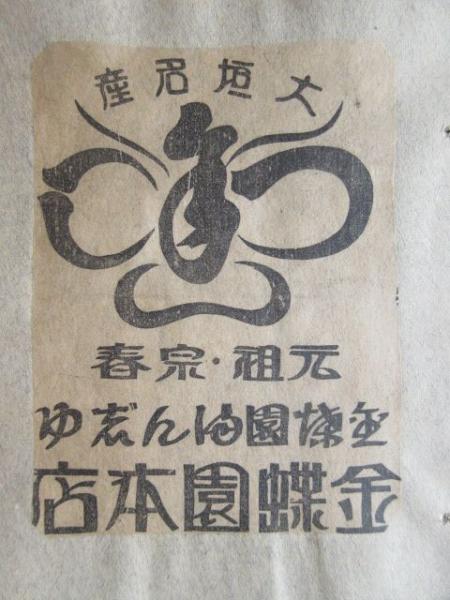 大垣名産
元祖・宗春
金蝶園まんじゆ
金蝶園本店